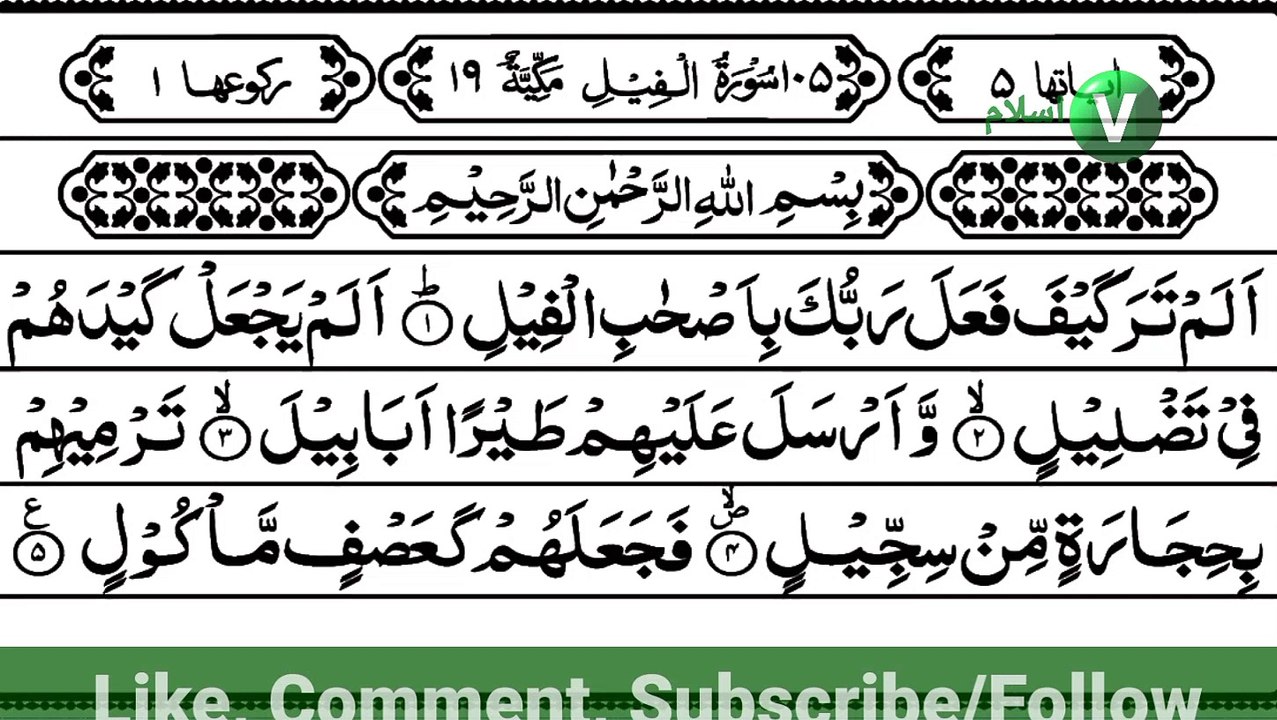 اٰیاتها ۵
۱۰۵ سُوْرَةُ الْفِیْلِ مَكِّیَّةٌ ۱۹
ركوعها ۱
اسلام V
بِسْمِ اللّٰهِ الرَّحْمٰنِ الرَّحِیْمِ
اَلَمْ تَرَ كَیْفَ فَعَلَ رَبُّكَ بِاَصْحٰبِ الْفِیْلِ ؕ﴿۱﴾ اَلَمْ یَجْعَلْ كَیْدَهُمْ
فِیْ تَضْلِیْلٍ ۙ﴿۲﴾ وَّ اَرْسَلَ عَلَیْهِمْ طَیْرًا اَبَابِیْلَ ۙ﴿۳﴾ تَرْمِیْهِمْ
بِحِجَارَةٍ مِّنْ سِجِّیْلٍ ۪ۙ﴿۴﴾ فَجَعَلَهُمْ كَعَصْفٍ مَّاْكُوْلٍ ﴿۵﴾ ع
Like, Comment, Subscribe/Follow